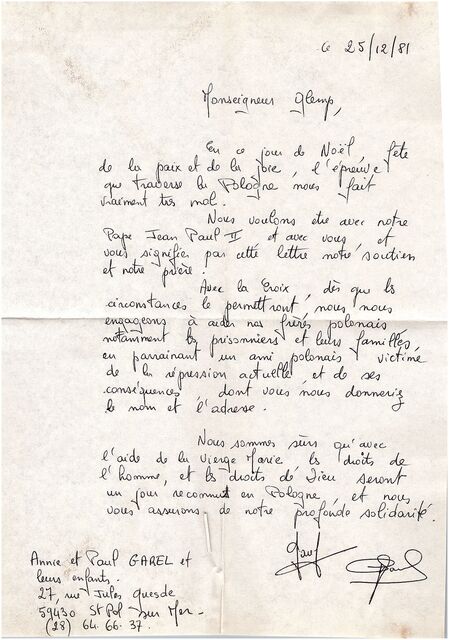 le 25/12/81
Monseigneur Glemp,
En ce jour de Noël, fête
de la paix et de la joie, l'épreuve
que traverse la Pologne nous fait
vraiment très mal.
Nous voulons être avec notre
Pape Jean Paul II et avec vous et
vous signifier par cette lettre notre soutien
et notre prière.
Avec la Croix, dès que les
circonstances le permettront, nous nous
engageons à aider nos frères polonais
notamment les prisonniers et leurs familles,
en parrainant un ami polonais victime
de la répression actuelle et de ses
conséquences dont vous nous donneriez
le nom et l'adresse.
Nous sommes sûrs qu'avec
l'aide de la vierge Marie les droits de
l'homme, et les droits de Dieu seront
un jour reconnus en Pologne, et nous
vous assurons de notre profonde solidarité.
Annie et Paul GAREL et
leurs enfants.
27, rue Jules Quesde
59430 St Pol sur Mer-
(28) 64.66.37.